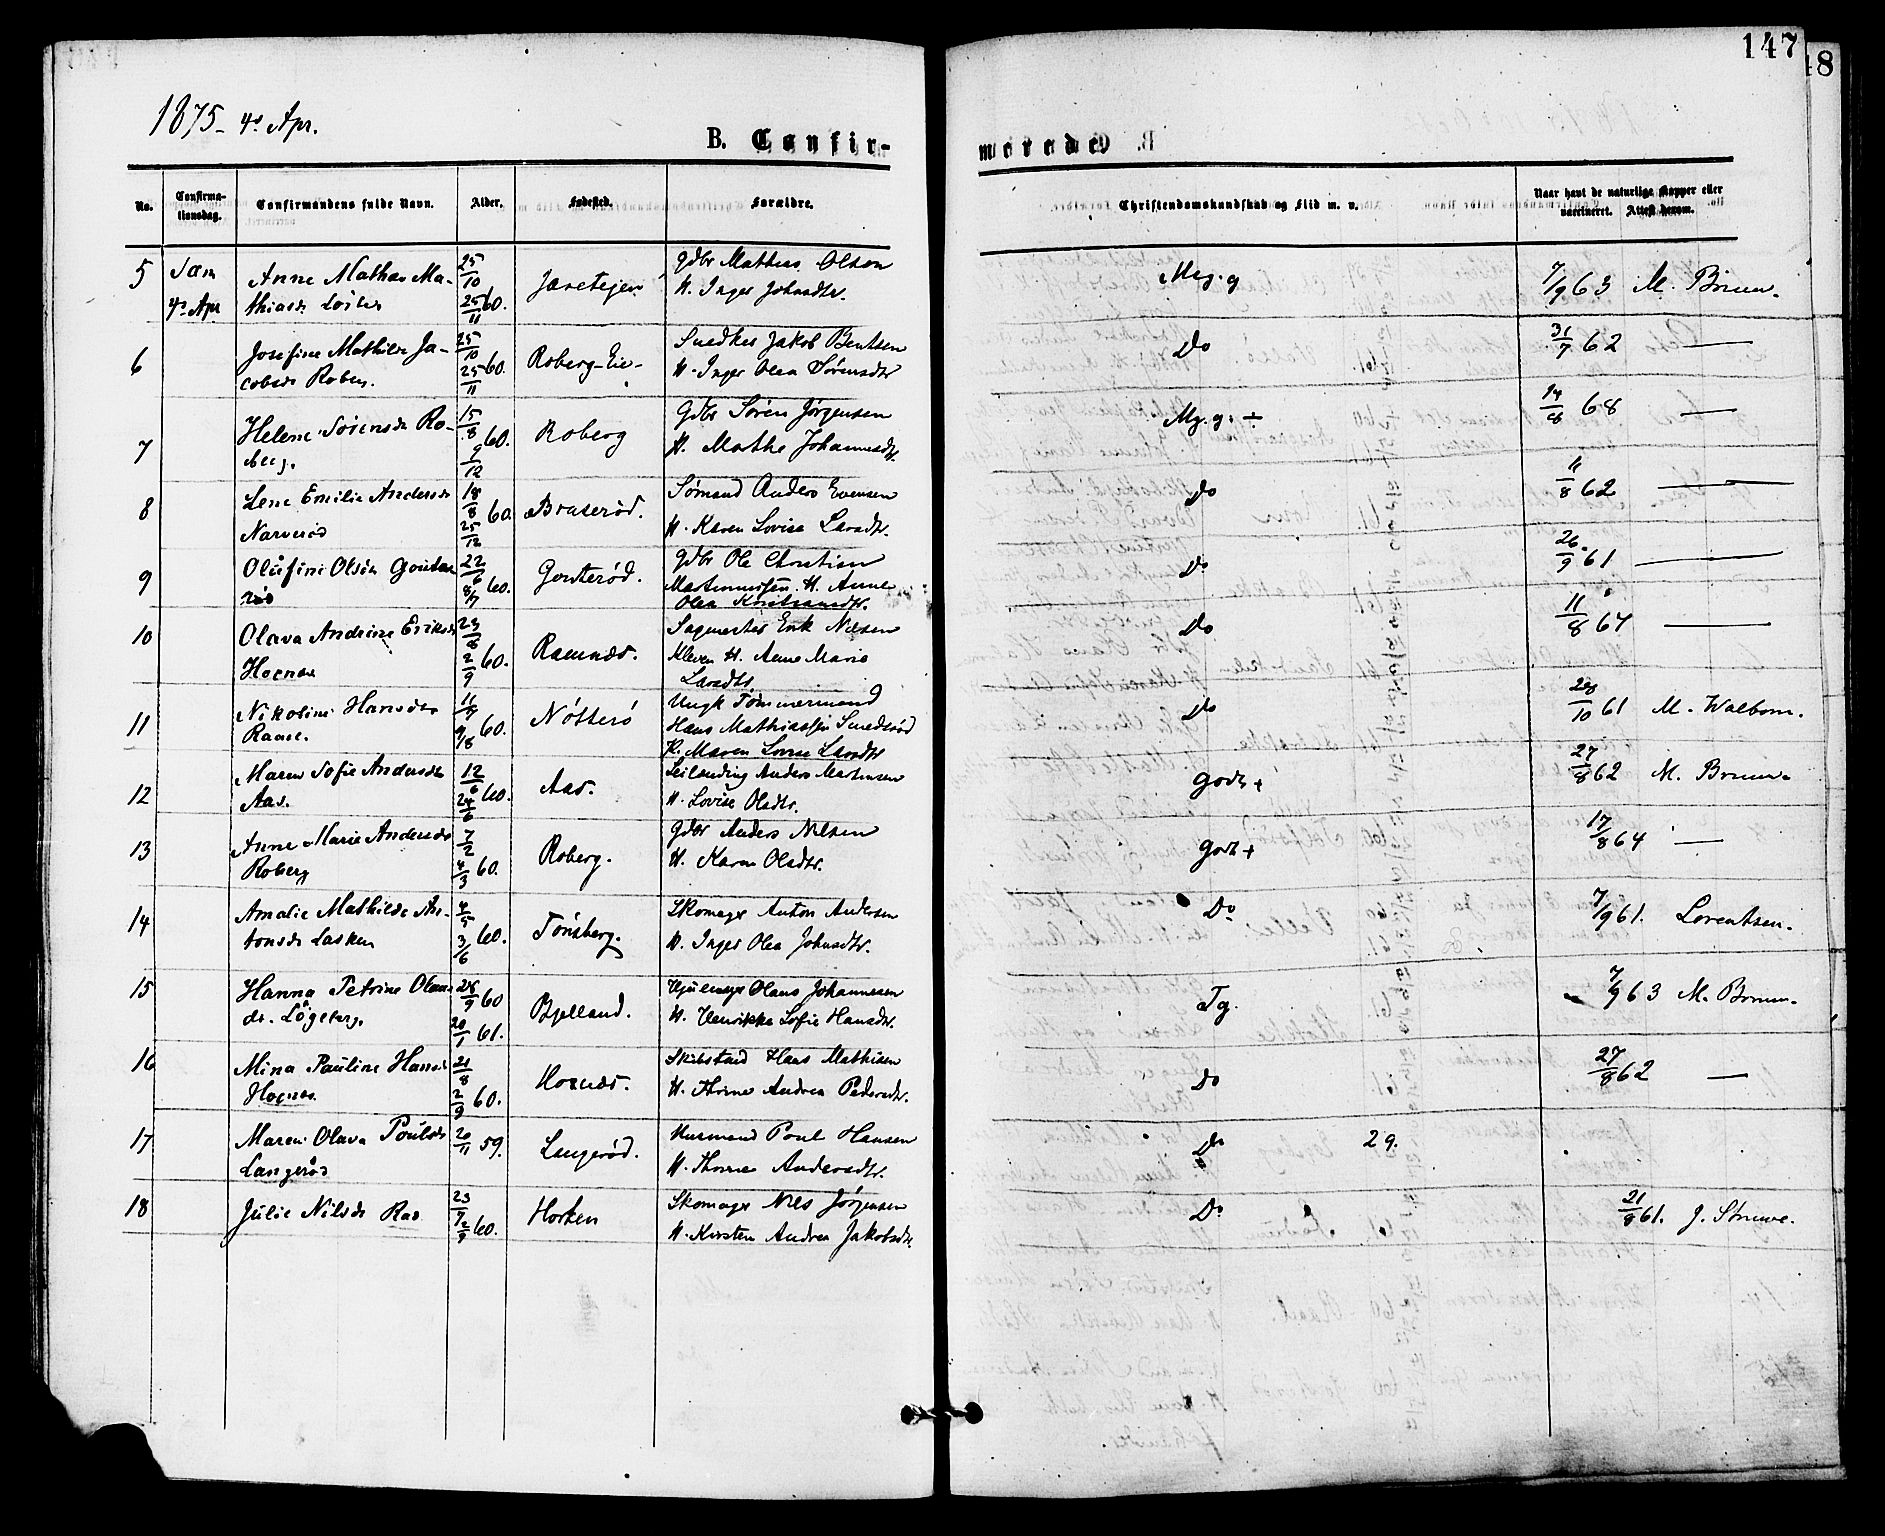 147
8
1875 - 4de Apr.
B. Confir-
merede
No.
Confirma-
tionsdag.
Confirmandens fulde Navn.
Alder.
Fødested.
Forældre.
Christendomskundskab og Flid m. v.
Naar havt de naturlige Kopper eller
vaccineret. Attest herom.
5 Søn 4de Apr
Anne Mathea Ma-
thiasdr
25/10 25/11 60.
Gdbr Mathias Olsen
H. Inger Johnsdtr.
Mg. g
7/9 63 M. Bruun.
6 Josefine Mathilde Ja-
cobsdr Roberg.
25/10 25/11 60.
Roberg-Eie-
Snedker Jakob Bentsen
H. Inger Olea Sørensdtr
Do
31/7 62 —
7 Helene Sørensdr Ro-
berg.
15/8 9/12 60.
Roberg
Gdbr Søren Jørgensen
H. Marthe Johannesdtr.
Mg. g. ÷
14/8 68 —
8 Lene Emilie Andersdr
Narverød
18/8 25/12 60.
Sømand Anders Evensen
H. Karen Lovise Larsdtr.
Do
11/8 62 —
9 Olufine Olsdr Gonte-
rød
22/6 8/7 60.
Gonterød.
Gdbr Ole Christian
H. Anne
Olea Kristiansdtr.
Do
26/9 61 —
10 Olava Andrine Eriksdr
Hognæs
2/9 60.
Ramnæs.
Erik Nilsen
H. Anne Marie
Larsdtr
Do
11/8 67 —
11 Nikoline Hansdr
9/8 60.
Nøtterø
Ungk Tømmermand
Hans Mathiassen Smederød
K. Maren Lovise Larsdtr
Do
10 61 M. Walbom.
12 Maren Sofie Andersdr
Aas.
12/6 24/6 60.
Aas.
Leilending Anders Martinsen
H. Lovise Olsdtr.
Godt +
27/8 62 M. Bruun.
13 Anne Marie Andersdr
Roberg
7/2 4/3 60.
Roberg.
Gdbr Anders Nilsen
H. Karen Olsdtr.
Godt +
17/8 64 —
14 Amalie Mathilde An-
tonsdr Lasken
4/5 3/6 60.
Tønsberg.
Skomager Anton Andersen
H. Inger Olea Johnsdtr.
Do
7/9 61. Lorentzen.
15 Hanna Petrine Olaus-
dr. Løgeberg.
28/9 60
20/1 61.
Bjelland.
Hjulmager Olaus Johannesen
H. Henrikke Sofie Hansdtr.
Tg.
7/9 63 M. Bruun.
16 Mina Pauline Hansdr
Hognæs.
21/8 2/9 60.
Hognæs.
Hans Mathisen
H. Thrine Andrea Pedersdtr.
Do
27/8 62 —
17 Maren Olava Poulsdr
Langerød
20/11 59.
Langerød.
Husmand Poul Hansen
H. Thorine Andersdtr.
Do
29.
18 Julie Nilsdr Ras
60.
Horten
Skomager Nils Jørgensen
H. Kirsten Andrea Jakobsdtr.
Do
21/8 61. J. Struwe.